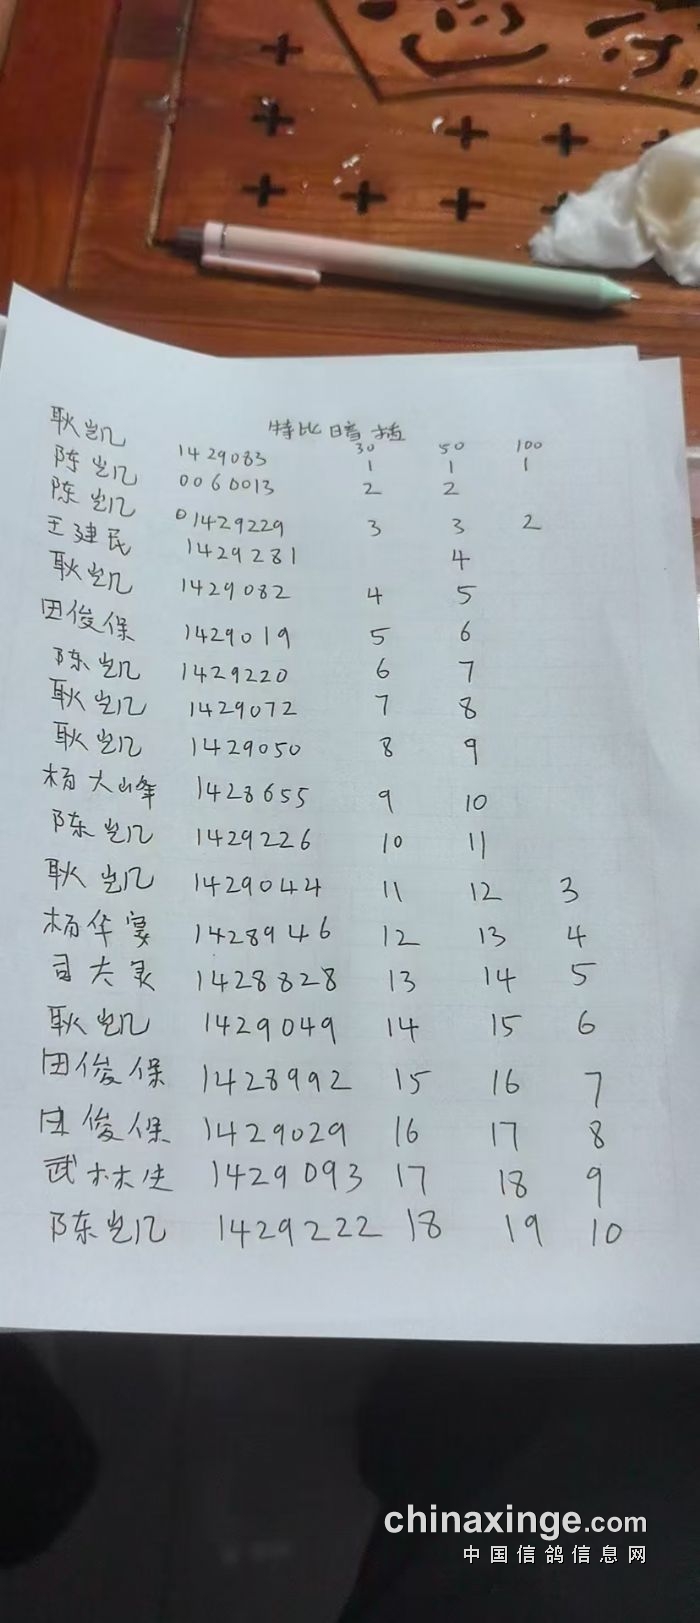 特比暗插
30 50 100
耿凯 1429083 1 1 1
陈凯 0060013 2 2
陈凯 01429229 3 3 2
王建民 1429281 4
耿凯 1429082 4 5
田俊保 1429019 5 6
陈凯 1429220 6 7
耿凯 1429072 7 8
耿凯 1429050 8 9
杨大峰 1428655 9 10
陈凯 1429226 10 11
耿凯 1429044 11 12 3
杨华 1428946 12 13 4
1428828 13 14 5
耿凯 1429049 14 15 6
田俊保 1428992 15 16 7
田俊保 1429029 16 17 8
武林生 1429093 17 18 9
陈凯 1429222 18 19 10
chinaxinge.com
中国信鸽信息网